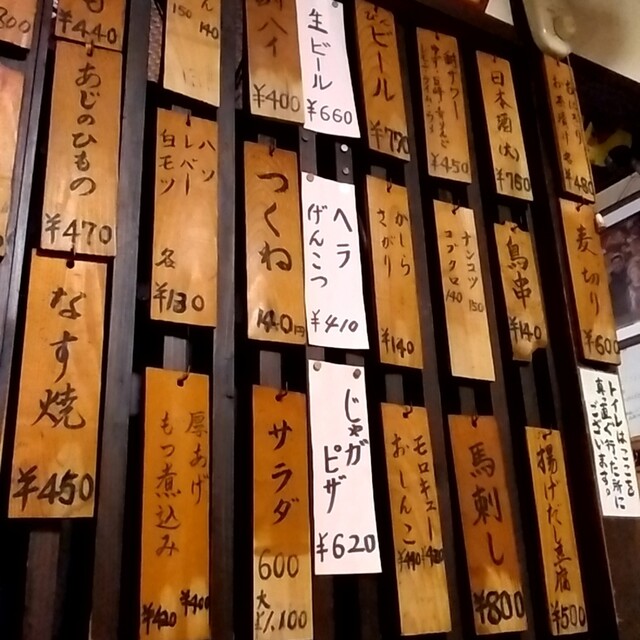 ¥440
あじのひもの
¥470
なす焼
¥450
150 140
ハツ
レバー
白モツ
各
¥130
厚あげ
¥400
もつ煮込み
¥420
ハイ
¥400
つくね
140円
サラダ
600
大
¥1,100
生ビール
¥660
ヘラ
げんこつ
¥410
じゃが
ピザ
¥620
ビール
かしら
さがり
¥140
モロキュー
¥420
おしんこ
¥440
¥450
ナンコツ
150
コブクロ
140
馬刺し
¥800
日本酒(大)
¥750
鳥串
¥140
揚げだし豆腐
¥500
麦切り
¥600
トイレはここを
真直ぐ行った所に
ございます。